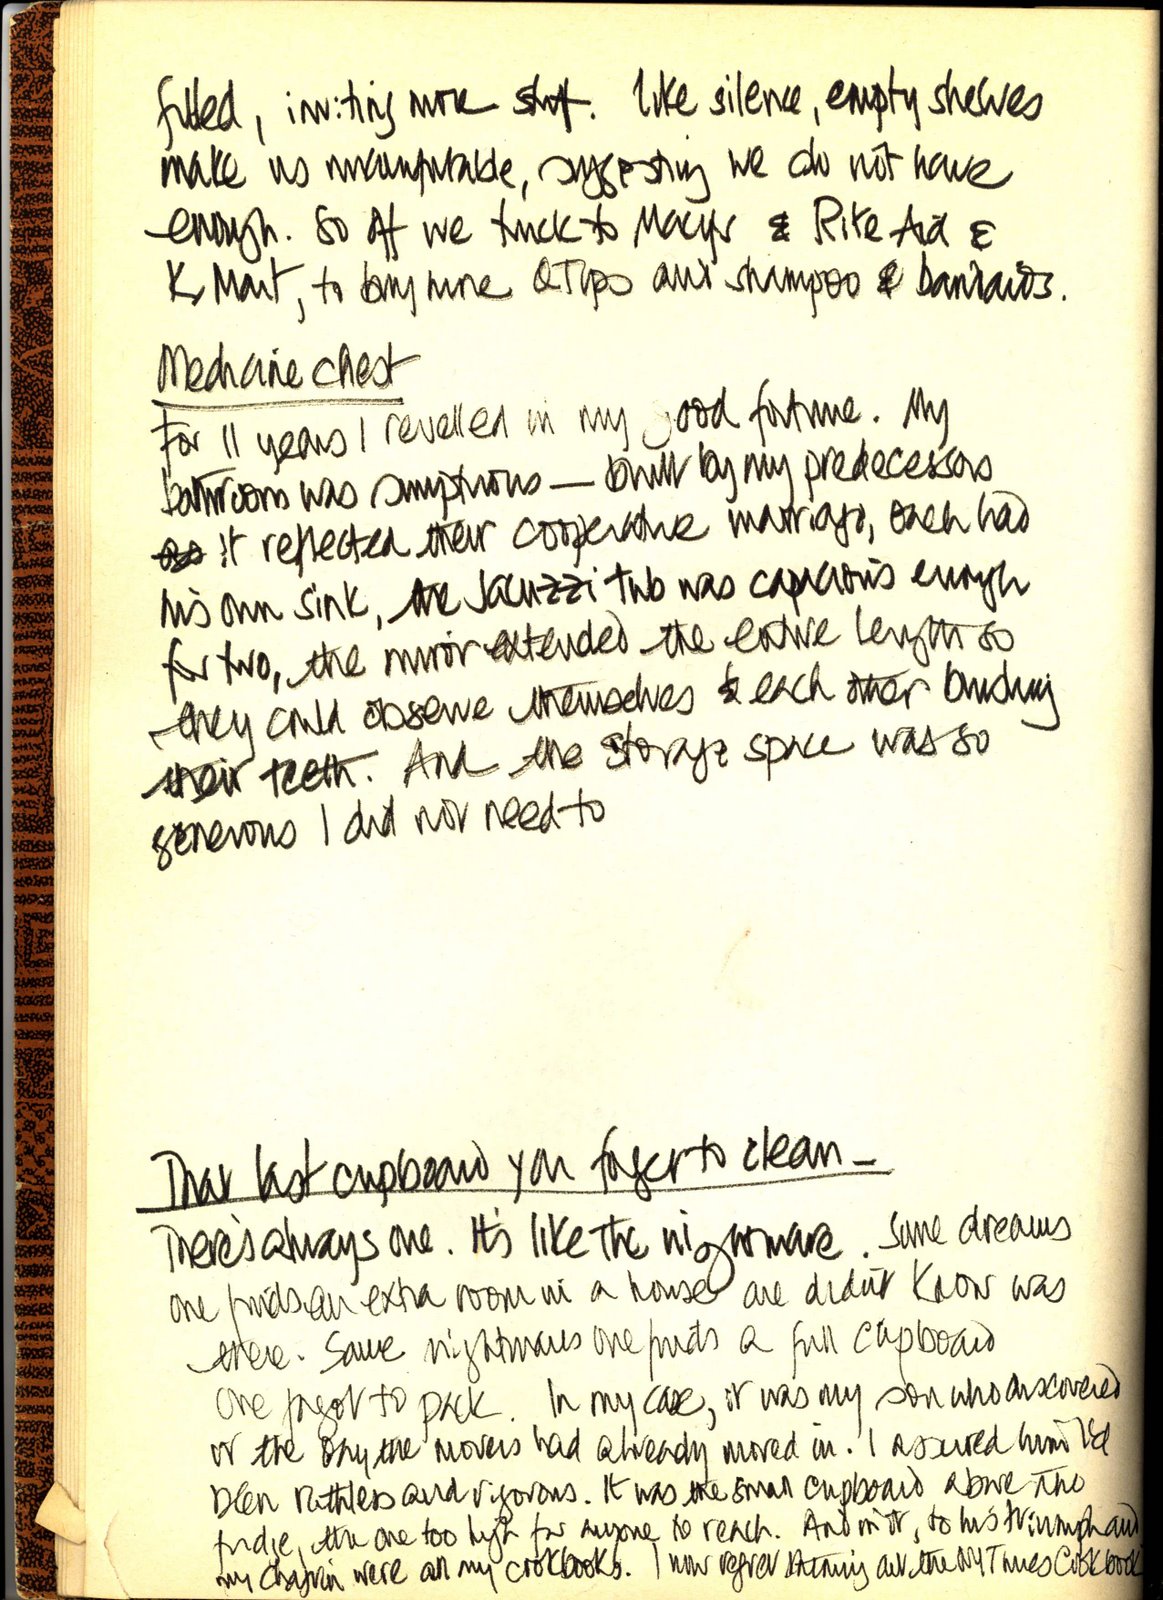 filled, inviting more stuff. Like silence, empty shelves
make us uncomfortable, suggesting we do not have
enough. So off we truck to Macys & Rite Aid &
K Mart, to buy more QTips and shampoo & bandaids.
Medicine chest
For 11 years I revelled in my good fortune. My
bathroom was sumptuous — built by my predecessors
it reflected their cooperative marriage, each had
his own sink, the Jacuzzi tub was capacious enough
for two, the mirror extended the entire length so
they could observe themselves & each other brushing
their teeth. And the storage space was so
generous I did not need to
That last cupboard you forget to clean —
There's always one. It's like the nightmare. Some dreams
one finds an extra room in a house one didn't know was
there. Some nightmares one finds a full cupboard
one forgot to pack. In my case, it was my son who discovered
it the day the movers had already moved in. I assured him I'd
been ruthless and rigorous. It was the small cupboard above the
fridge, the one too high for anyone to reach. And in it, to his triumph and
my chagrin were all my cookbooks. I now regret throwing out the NY Times Cookbook